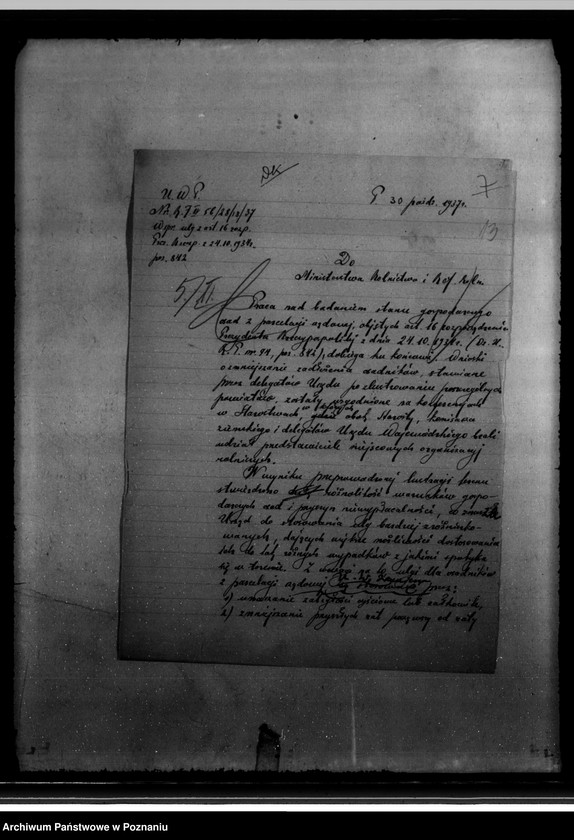 DK
7
13
U. W. P.
P. 30 paźdz. 1937 r.
w spr. ulg z art. 16 rozp.
Prez. Rzeczp. z 24.10.1934 r.
poz. 842
Do
Ministerstwa Rolnictwa i Ref. Roln.
5/XI.
Praca nad badaniem stanu gospodarczego
osad z parcelacji rządowej, objętych art. 16 rozporządzenia
Prezydenta Rzeczypospolitej z dnia 24.10.1934 r. (Dz. U.
R.P. nr. 94, poz. 842), dobiega ku końcowi. Wnioski
o zmniejszenie zadłużenia osadników, stawiane
przez delegatów Urzędu po zlustrowaniu poszczególnych
powiatów, zostały uzgodnione na konferencjach
w Starostwach, w których obok Starosty, komisarza
ziemskiego i delegatów Urzędu Wojewódzkiego brali
udział przedstawiciele miejscowych organizacji
rolniczych.
W wyniku przeprowadzonej lustracji terenu
stwierdzono różnolitość warunków gospo-
darczych osad i przyczyn niewypłacalności, co zmusiło
Urząd do stosowania ulg bardziej zróżniczko-
wanych, dających większe możliwości dostosowania
się do tak różnych wypadków z jakimi spotyka
się w terenie. Z uwagi na to ulgi dla osadników
z parcelacji rządowej przez:
1) umorzenie zaległości częściowe lub całkowite,
2) zmniejszenie przyszłych rat począwszy od raty
Archiwum Państwowe w Poznaniu